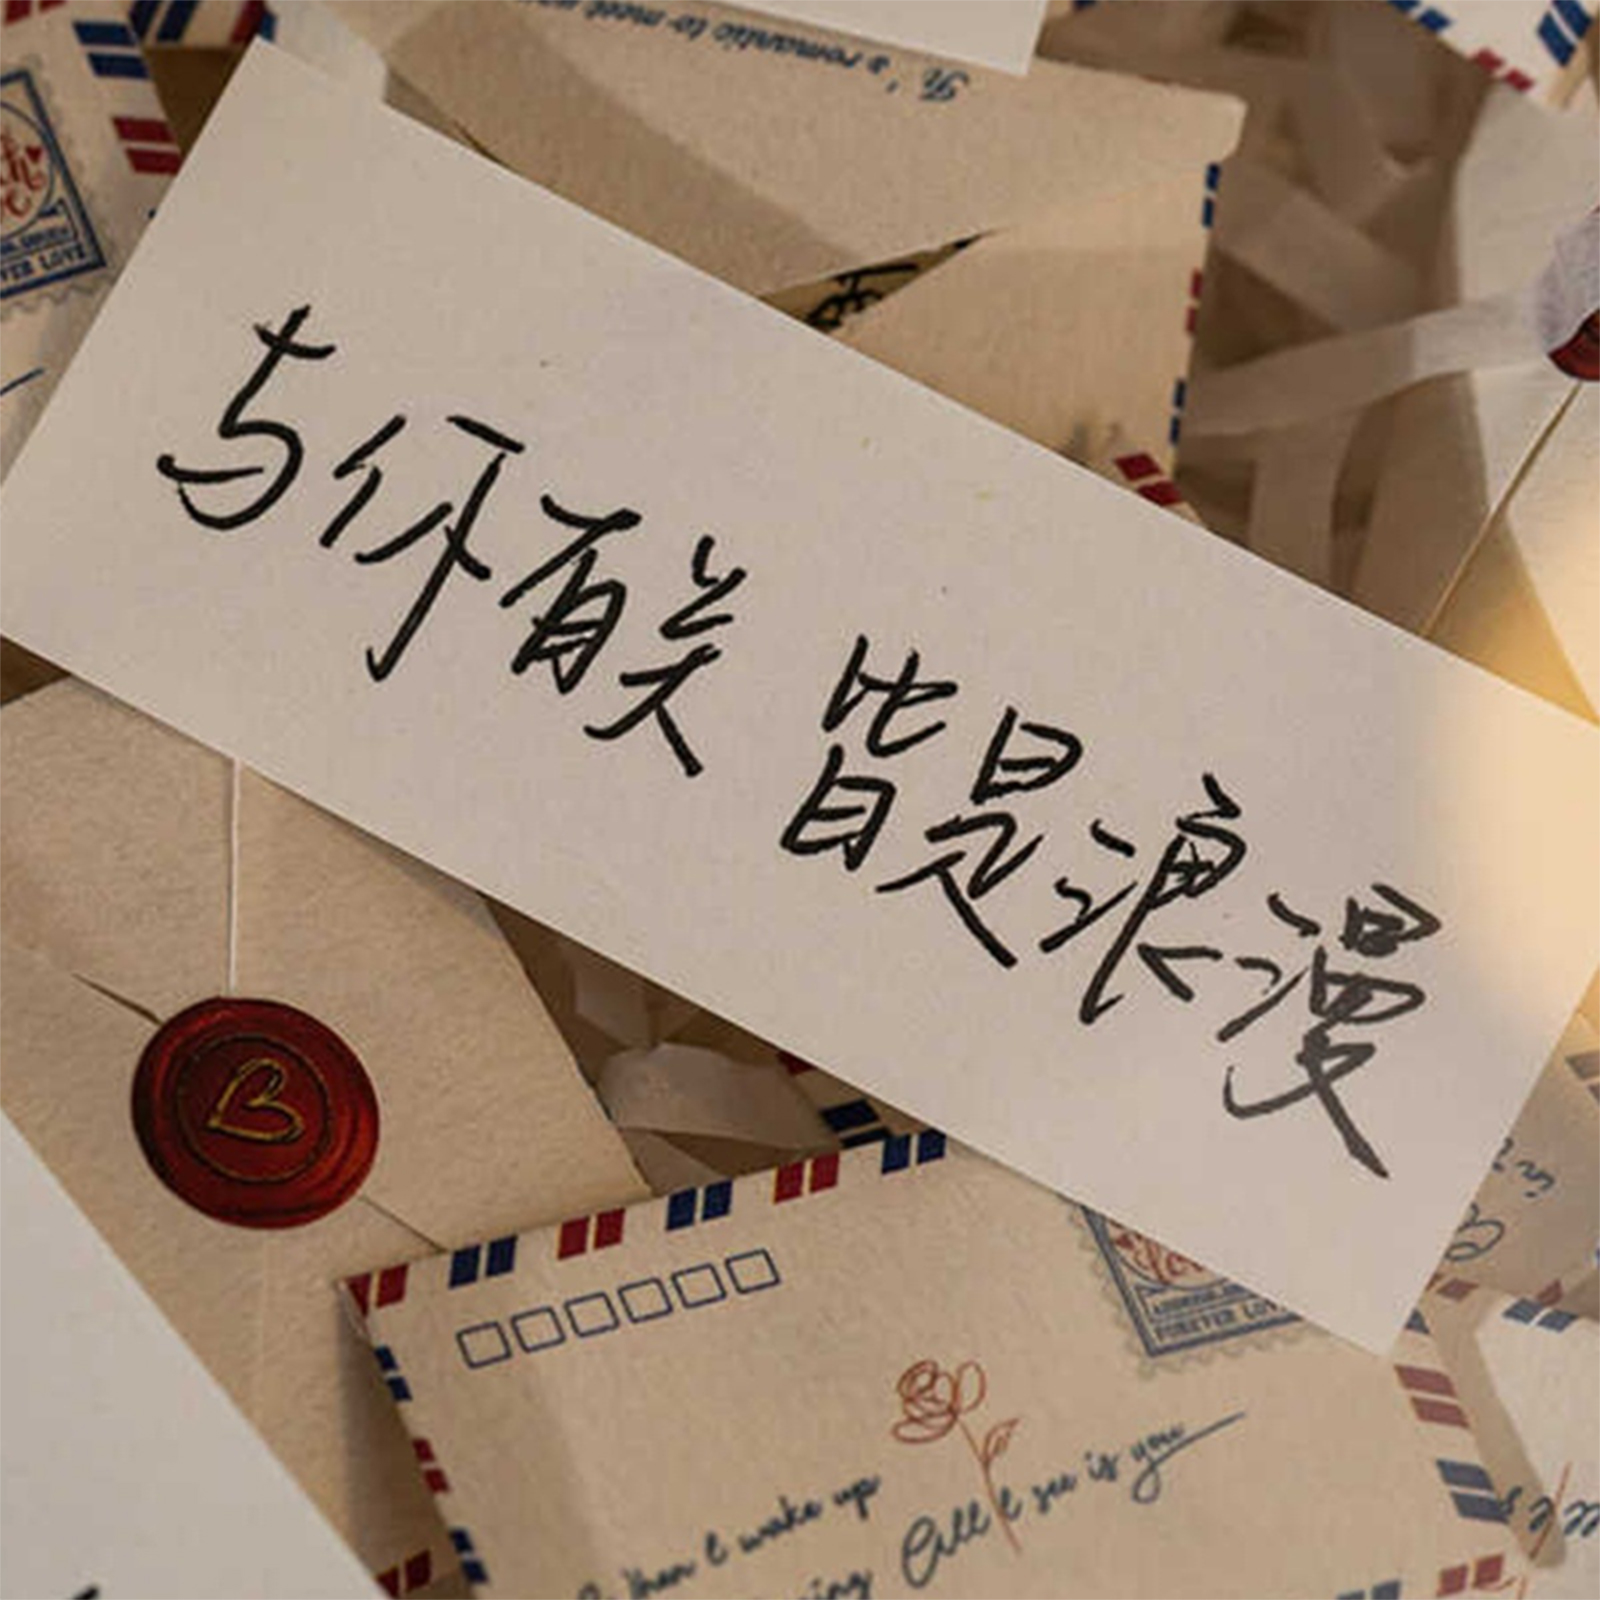 It's romantic to meet you
VER LOVE
与你有关 皆是浪漫
FOREVER LOVE
When I wake up
All I see is you